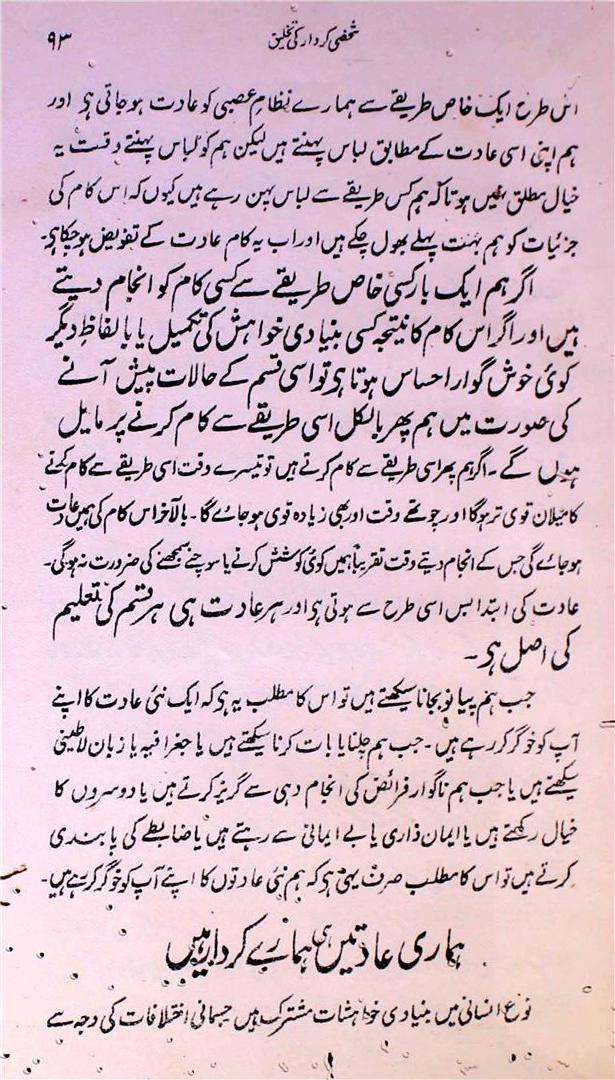 شخصی کردار کی تخلیق ۹۳
اس طرح ایک خاص طریقے سے ہمارے نظام عصبی کو عادت ہو جاتی ہی اور
ہم اپنی اسی عادت کے مطابق لباس پہنتے ہیں لیکن ہم کو لباس پہنتے وقت یہ
خیال مطلق نہیں ہوتا کہ ہم کس طریقے سے لباس پہن رہے ہیں کیوں کہ اس کام کی
جزئیات کو ہم بہت پہلے بھول چکے ہیں اور اب یہ کام عادت کے تفویض ہو چکا ہی۔
اگر ہم ایک بار کسی خاص طریقے سے کسی کام کو انجام دیتے
ہیں اور اگر اس کام کا نتیجہ کسی بنیادی خواہش کی تکمیل یا بالفاظ دیگر
کوئی خوش گوار احساس ہوتا ہی تو اسی قسم کے حالات پیش آنے
کی صورت میں ہم پھر بالکل اسی طریقے سے کام کرنے پر مایل
ہوں گے۔ اگر ہم پھر اسی طریقے سے کام کرتے ہیں تو تیسرے وقت اسی طریقے سے کام کرنے
کا میلان قوی تر ہوگا اور چوتھے وقت اور بھی زیادہ قوی ہو جائے گا۔ بالآخر اس کام کی ہمیں عادت
ہو جائے گی جس کے انجام دیتے وقت تقریباً ہمیں کوئی کوشش کرنے یا سوچنے سمجھنے کی ضرورت نہ ہوگی۔
عادت کی ابتدا بس اسی طرح سے ہوتی ہی اور ہر عادت ہی ہر قسم کی تعلیم
کی اصل ہی۔
جب ہم پیانو بجانا سیکھتے ہیں تو اس کا مطلب یہ ہی کہ ایک نئی عادت کا اپنے
آپ کو خوگر کر رہے ہیں۔ جب ہم چلنا یا بات کرنا سیکھتے ہیں یا جغرافیہ یا زبان لاطینی
سیکھتے ہیں یا جب ہم ناگوار فرائض کی انجام دہی سے گریز کرتے ہیں یا دوسروں کا
خیال رکھتے ہیں یا ایمان داری یا بے ایمانی سے رہتے ہیں یا ضابطے کی پابندی
کرتے ہیں تو اس کا مطلب صرف یہی ہی کہ ہم نئی عادتوں کا اپنے آپ کو خوگر کر رہے ہیں۔
ہماری عادتیں ہی ہمارے کردار ہیں
نوع انسانی میں بنیادی خواہشات مشترک ہیں جسمانی اختلافات کی وجہ سے